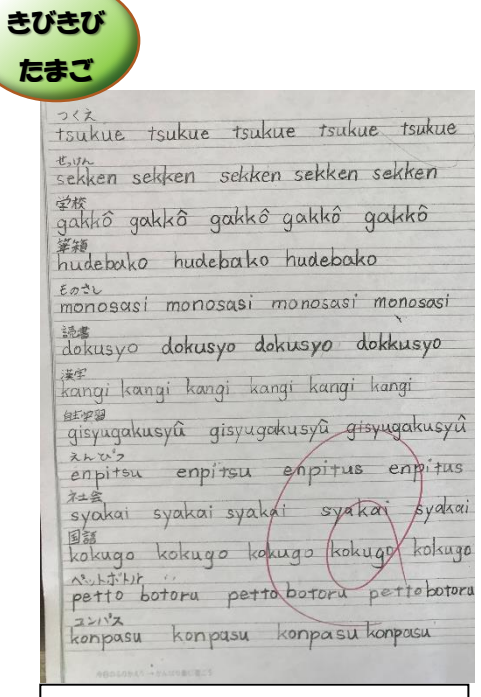 きびきび
たまご
つくえ
tsukue tsukue tsukue tsukue tsukue
せっけん
sekken sekken sekken sekken sekken
学校
gakkô gakkô gakkô gakkô gakkô
筆箱
hudebako hudebako hudebako
ものさし
monosasi monosasi monosasi monosasi
読書
dokusyo dokusyo dokusyo dokkusyo
漢字
kangi kangi kangi kangi kangi kangi
自主学習
gisyugakusyû gisyugakusyû gisyugakusyû
えんぴつ
enpitsu enpitsu enpitus enpitus
社会
syakai syakai syakai syakai syakai
国語
kokugo kokugo kokugo kokugo kokugo
ペットボトル
petto botoru petto botoru petto botoru
コンパス
konpasu konpasu konpasu konpasu